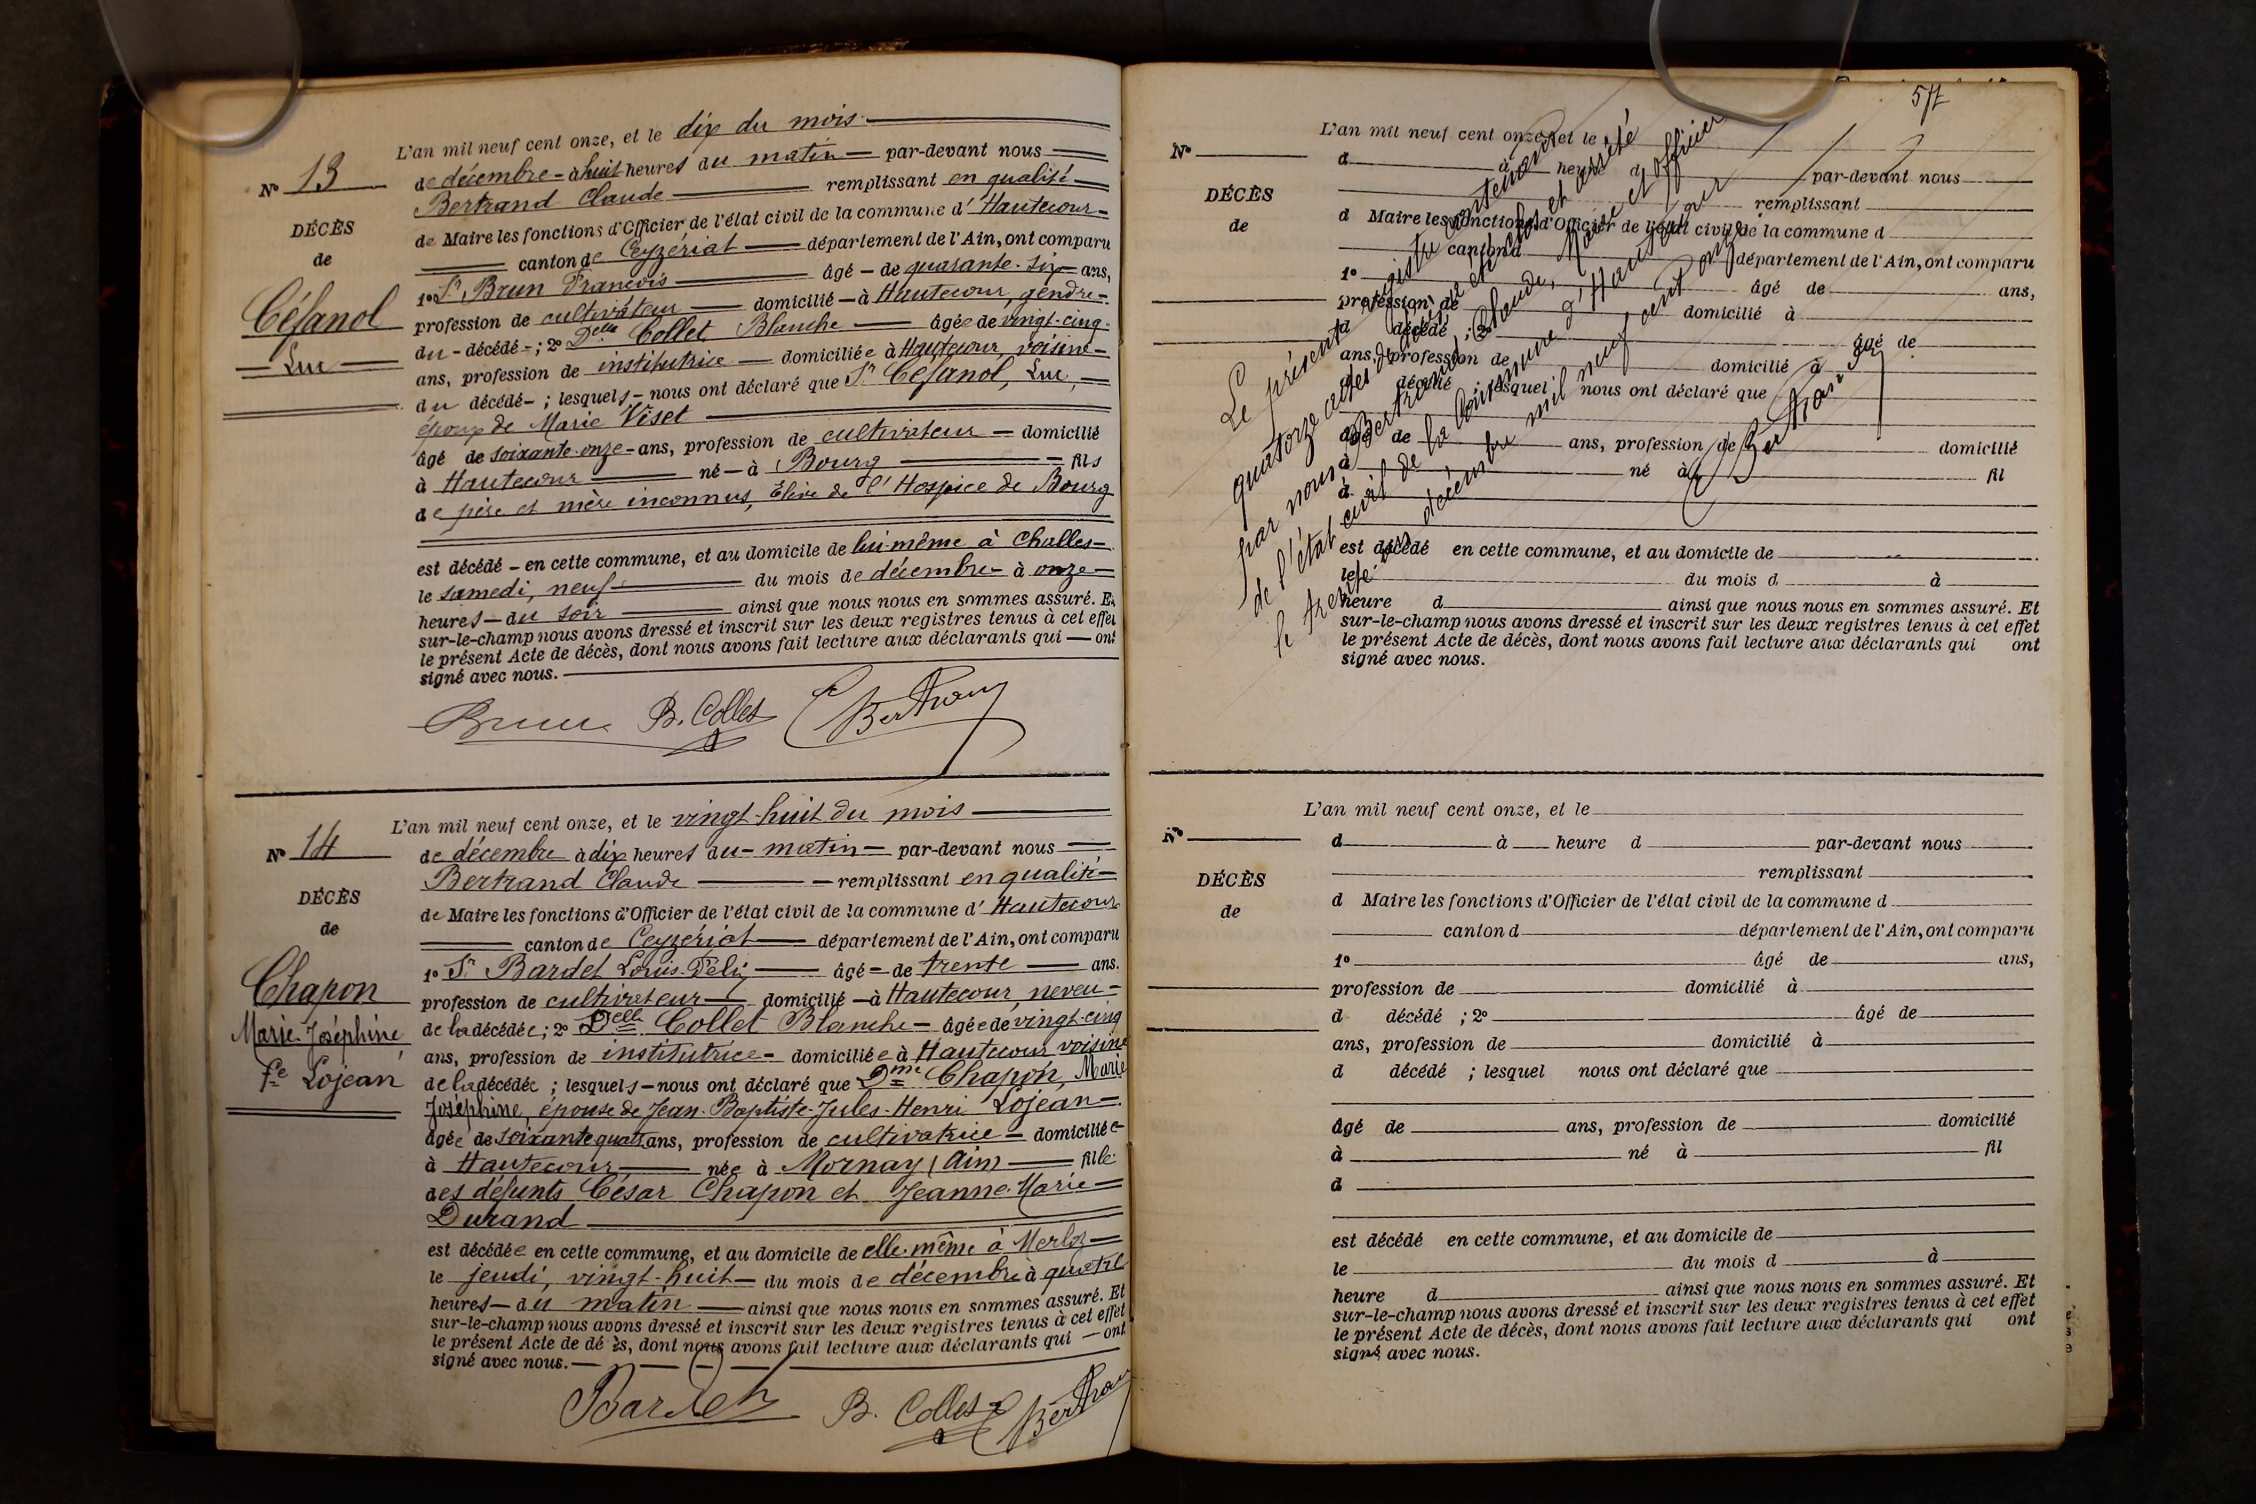 L'an mil neuf cent onze, et le dix du mois
N° 13
de décembre à huit heures du matin par-devant nous
Bertrand Claude remplissant en qualité
DÉCÈS
de Maire les fonctions d'Officier de l'état civil de la commune d'Hautecour
de
canton de Ceyzériat département de l'Ain, ont comparu
1° Sr Brun François âgé de quarante-six ans,
Césanol
profession de cultivateur domicilié à Hautecour, gendre
du décédé ; 2° Delle Collet Blanche âgée de vingt-cinq
Luc
ans, profession de institutrice domiciliée à Hautecour, voisine
du décédé ; lesquels nous ont déclaré que Sr Césanol, Luc,
époux de Marie Viset
âgé de soixante-onze ans, profession de cultivateur domicilié
à Hautecour né à Bourg fils
de père et mère inconnus, Elève de l'Hospice de Bourg
est décédé en cette commune, et au domicile de lui-même à Challes
le samedi, neuf du mois de décembre à onze
heures du soir ainsi que nous nous en sommes assuré. Et
sur-le-champ nous avons dressé et inscrit sur les deux registres tenus à cet effet
le présent Acte de décès, dont nous avons fait lecture aux déclarants qui ont
signé avec nous.
Brun B. Collet C Bertrand
L'an mil neuf cent onze, et le vingt-huit du mois
N° 14
de décembre à dix heures du matin par-devant nous
Bertrand Claude remplissant en qualité
DÉCÈS
de Maire les fonctions d'Officier de l'état civil de la commune d'Hautecour
de
canton de Ceyzériat département de l'Ain, ont comparu
1° Sr Bardet Louis-Félix âgé de trente ans.
Chapon
profession de cultivateur domicilié à Hautecour, neveu
Marie-Joséphine
de la décédée ; 2° Delle Collet Blanche âgée de vingt-cinq
ans, profession de institutrice domiciliée à Hautecour voisine
Fe Lojean
de la décédée ; lesquels nous ont déclaré que Dme Chapon, Marie
Joséphine, épouse de Jean-Baptiste-Jules-Henri Lojean
âgée de soixante quatre ans, profession de cultivatrice domiciliée
à Hautecour née à Mornay (Ain) fille
des défunts César Chapon et Jeanne-Marie
Durand
est décédée en cette commune, et au domicile de elle-même à Merloz
le jeudi, vingt-huit du mois de décembre à quatre
heures du matin ainsi que nous nous en sommes assuré. Et
sur-le-champ nous avons dressé et inscrit sur les deux registres tenus à cet effet
le présent Acte de décès, dont nous avons fait lecture aux déclarants qui ont
signé avec nous.
Bardet B. Collet C Bertrand
L'an mil neuf cent onze, et le
N°
d à heure d par-devant nous
DÉCÈS
remplissant
de
d Maire les fonctions d'Officier de l'état civil de la commune d
canton d département de l'Ain, ont comparu
1° âgé de ans,
profession de domicilié à
d décédé ; 2° âgé de
ans, profession de domicilié à
d décédé ; lesquel nous ont déclaré que
âgé de ans, profession de domicilié
à né à fil
d
est décédé en cette commune, et au domicile de
le du mois d à
heure d ainsi que nous nous en sommes assuré. Et
sur-le-champ nous avons dressé et inscrit sur les deux registres tenus à cet effet
le présent Acte de décès, dont nous avons fait lecture aux déclarants qui ont
signé avec nous.
Le présent registre contenant
quatorze actes de décès a été clos et arrêté
par nous Bertrand Claude, Maire et officier
de l'état civil de la Commune d'Hautecour
le trente un décembre mil neuf cent onze.
C Bertrand
L'an mil neuf cent onze, et le
N°
d à heure d par-devant nous
remplissant
DÉCÈS
d Maire les fonctions d'Officier de l'état civil de la commune d
de
canton d département de l'Ain, ont comparu
1° âgé de ans,
profession de domicilié à
d décédé ; 2° âgé de
ans, profession de domicilié à
d décédé ; lesquel nous ont déclaré que
âgé de ans, profession de domicilié
à né à fil
d
est décédé en cette commune, et au domicile de
le du mois d à
heure d ainsi que nous nous en sommes assuré. Et
sur-le-champ nous avons dressé et inscrit sur les deux registres tenus à cet effet
le présent Acte de décès, dont nous avons fait lecture aux déclarants qui ont
signé avec nous.